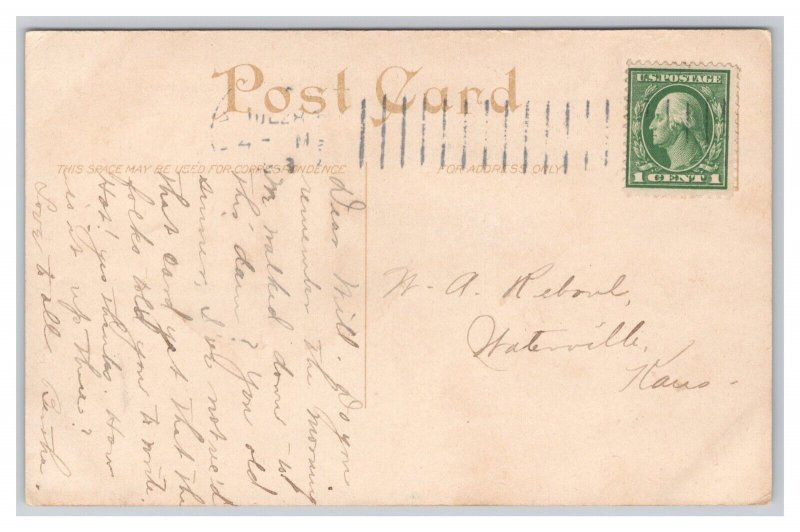 Post Card
U.S. POSTAGE
1 CENT 1
THIS SPACE MAY BE USED FOR CORRESPONDENCE
FOR ADDRESS ONLY
Dear Will. Do you
remember the morning
we walked down to
this dam? You old
sinner, I've not rec'd
that card yet that the
focks told you to write.
Hot! yes thanks. How
is it up there?
Love to all Bertha.
W. A. Reboul,
Waterville,
Kans-